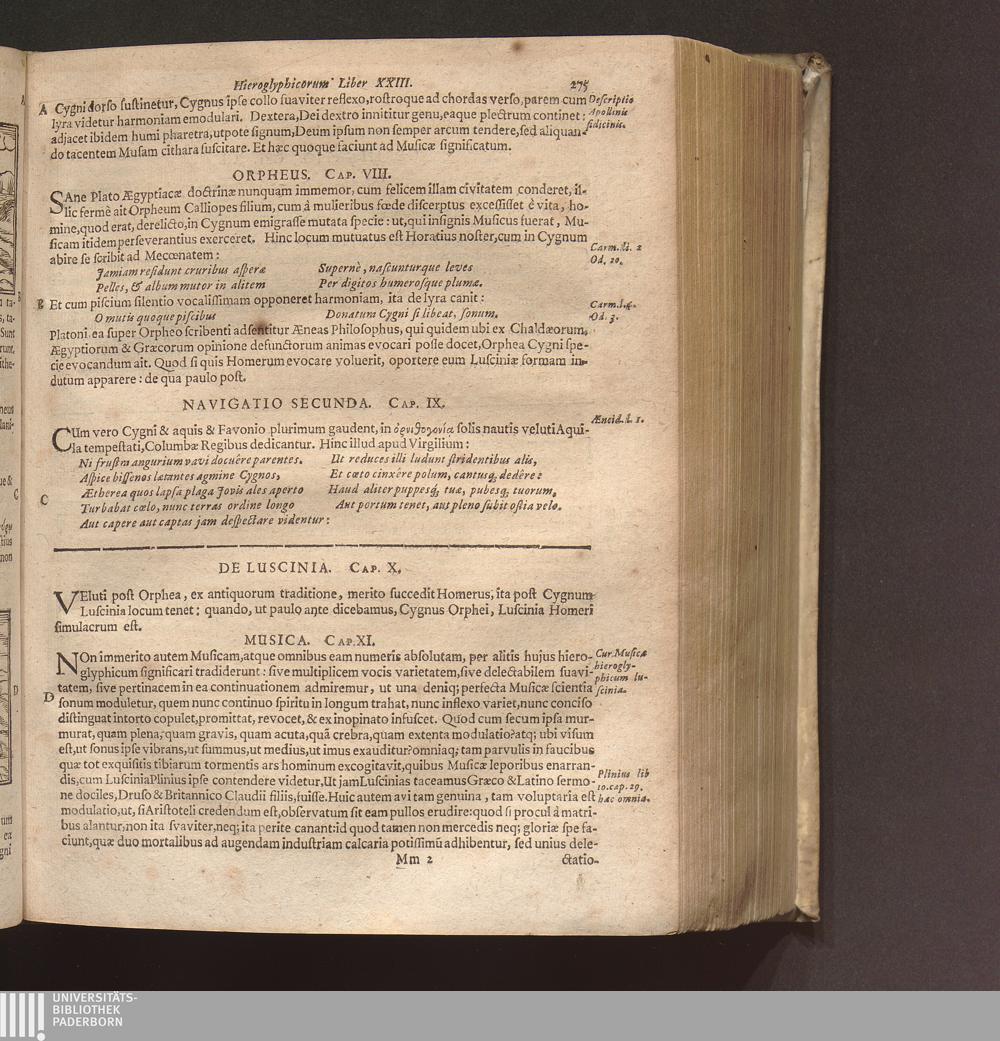 Hieroglyphicorum Liber XXIII. 275
A Cygni dorso sustinetur, Cygnus ipse collo suaviter reflexo, rostroque ad chordas verso, parem cum Descriptio
lyra videtur harmoniam emodulari. Dextera, Dei dextro innititur genu, eaque plectrum continet: Apollinis
adjacet ibidem humi pharetra, utpote signum, Deum ipsum non semper arcum tendere, sed aliquan- fidicinis.
do tacentem Musam cithara suscitare. Et hæc quoque faciunt ad Musicæ significatum.
ORPHEUS. CAP. VIII.
SAne Plato Ægyptiacæ doctrinæ nunquam immemor, cum felicem illam civitatem conderet, il-
lic fermè ait Orpheum Calliopes filium, cum à mulieribus fœde discerptus excessisset è vita, ho-
mine, quod erat, derelicto, in Cygnum emigrasse mutata specie: ut, qui insignis Musicus fuerat, Mu-
sicam itidem perseverantius exerceret. Hinc locum mutuatus est Horatius noster, cum in Cygnum
abire se scribit ad Mecœnatem: Carm. li. 2
Od. 20.
Jam iam residunt cruribus asperæ Supernè, nascunturque leves
Pelles, & album mutor in alitem Per digitos humerosque plumæ.
B Et cum piscium silentio vocalissimam opponeret harmoniam, ita de lyra canit: Carm. l. 4.
O mutis quoque piscibus Donatura Cygni si libeat, sonum. Od. 3.
Platoni ea super Orpheo scribenti adsentitur Æneas Philosophus, qui quidem ubi ex Chaldæorum,
Ægyptiorum & Græcorum opinione defunctorum animas evocari posse docet, Orphea Cygni spe-
cie evocandum ait. Quod si quis Homerum evocare voluerit, oportere eum Lusciniæ formam in-
dutum apparere: de qua paulo post.
NAVIGATIO SECUNDA. CAP. IX.
CUm vero Cygni & aquis & Favonio plurimum gaudent, in ὀρνιθογονίᾳ solis nautis veluti Aqui- Æneid. l. 1.
la tempestati, Columbæ Regibus dedicantur. Hinc illud apud Virgilium:
Ni frustra angurium vavi docuêre parentes. Ut reduces illi ludunt stridentibus alis,
Aspice bissenos lætantes agmine Cygnos, Et cœto cinxêre polum, cantusq; dedêre:
C Ætherea quos lapsa plaga Jovis ales aperto Haud aliter puppesq; tuæ, pubesq; tuorum,
Turbabat cœlo, nunc terras ordine longo Aut portum tenet, aut pleno subit ostia velo.
Aut capere aut captas jam despectare videntur:
DE LUSCINIA. CAP. X.
VEluti post Orphea, ex antiquorum traditione, merito succedit Homerus, ita post Cygnum
Luscinia locum tenet: quando, ut paulo ante dicebamus, Cygnus Orphei, Luscinia Homeri
simulacrum est.
MUSICA. CAP. XI.
NOn immerito autem Musicam, atque omnibus eam numeris absolutam, per alitis hujus hiero- Cur Musicæ
glyphicum significari tradiderunt: sive multiplicem vocis varietatem, sive delectabilem suavi- hierogly-
tatem, sive pertinacem in ea continuationem admiremur, ut una deniq; perfecta Musicæ scientia phicum lu-
D sonum moduletur, quem nunc continuo spiritu in longum trahat, nunc inflexo variet, nunc conciso scinia.
distinguat intorto copulet, promittat, revocet, & ex inopinato infuscet. Quod cum secum ipsa mur-
murat, quam plena, quam gravis, quam acuta, quã crebra, quam extenta modulatio? atq; ubi visum
est, ut sonus ipse vibrans, ut summus, ut medius, ut imus exauditur? omniaq; tam parvulis in faucibus
quæ tot exquisitis tibiarum tormentis ars hominum excogitavit, quibus Musicæ leporibus enarran-
dis, cum Luscinia Plinius ipse contendere videtur, Ut jam Luscinias taceamus Græco & Latino sermo- Plinius lib
ne dociles, Druso & Britannico Claudii filiis, fuisse. Huic autem avi tam genuina, tam voluptaria est 10. cap. 29.
modulatio, ut, si Aristoteli credendum est, observatum sit eam pullos erudire: quod si procul à matri- hæc omnia.
bus alantur, non ita svaviter, neq; ita perite canant: id quod tamen non mercedis neq; gloriæ spe fa-
ciunt, quæ duo mortalibus ad augendam industriam calcaria potissimũ adhibentur, sed unius dele-
Mm 2 ctatio-
UNIVERSITÄTS-
BIBLIOTHEK
PADERBORN